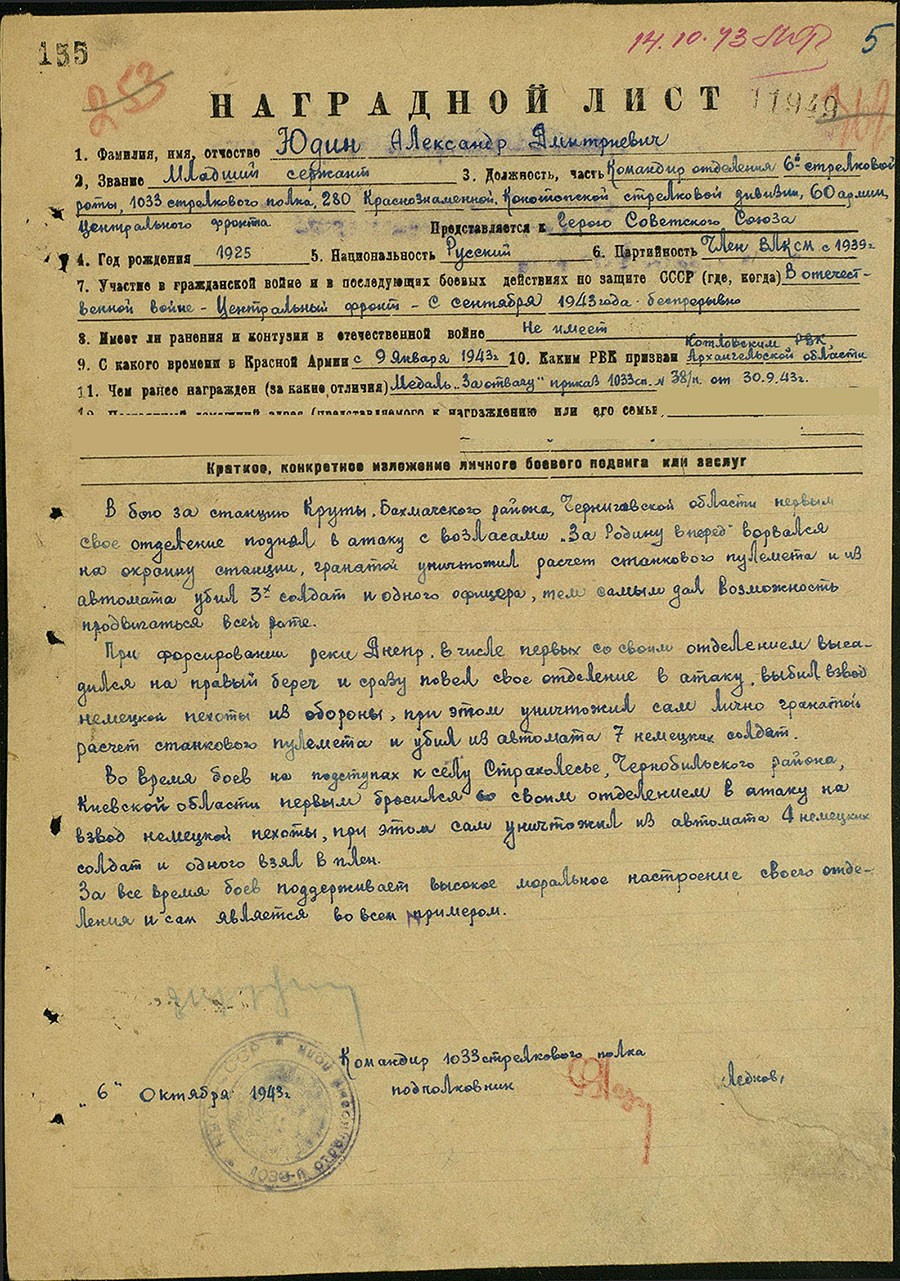 155
14.10.43
5
253
НАГРАДНОЙ ЛИСТ 11949
1. Фамилия, имя, отчество Юдин Александр Дмитриевич
2, Звание Младший сержант 3. Должность, часть Командир отделения 6й стрелковой
роты, 1033 стрелкового полка, 280 Краснознаменной, Конотопской стрелковой дивизии, 60 армии,
Центрального фронта Представляется к Герою Советского Союза
4. Год рождения 1925 5. Национальность Русский 6. Партийность Член ВЛКСМ с 1939г
7. Участие в гражданской войне и в последующих боевых действиях по защите СССР (где, когда) В отечест-
венной войне - Центральный фронт - С сентября 1943 года беспрерывно
8. Имеет ли ранения и контузии в отечественной войне Не имеет
9. С какого времени в Красной Армии с 9 Января 1943г 10. Каким РВК призван Котловским РВК,
Архангельской области
11. Чем ранее награжден (за какие отличия) Медаль „За отвагу" приказ 1033сп. № 38/н. от 30.9.43г.
12. Постоянный домашний адрес (представляемого к награждению или его семьи
Краткое, конкретное изложение личного боевого подвига или заслуг
В бою за станцию Круты, Бахмачского района, Черниговской области первым
свое отделение поднял в атаку с возгласами „За Родину вперед" ворвался
на окраину станции, гранатой уничтожил расчет станкового пулемета и из
автомата убил 3х солдат и одного офицера, тем самым дал возможность
продвигаться всей роте.
При форсировании реки Днепр, в числе первых со своим отделением выса-
дился на правый берег и сразу повел свое отделение в атаку, выбил взвод
немецкой пехоты из обороны, при этом уничтожил сам лично гранатой
расчет станкового пулемета и убил из автомата 7 немецких солдат.
Во время боев на подступах к селу Страхолесье, Чернобильского района,
Киевской области первым бросился со своим отделением в атаку на
взвод немецкой пехоты, при этом сам уничтожил из автомата 4 немецких
солдат и одного взял в плен.
За все время боев поддерживает высокое моральное настроение своего отде-
ления и сам является во всем примером.
Командир 1033 стрелкового полка
подполковник
„6" Октября 1943г